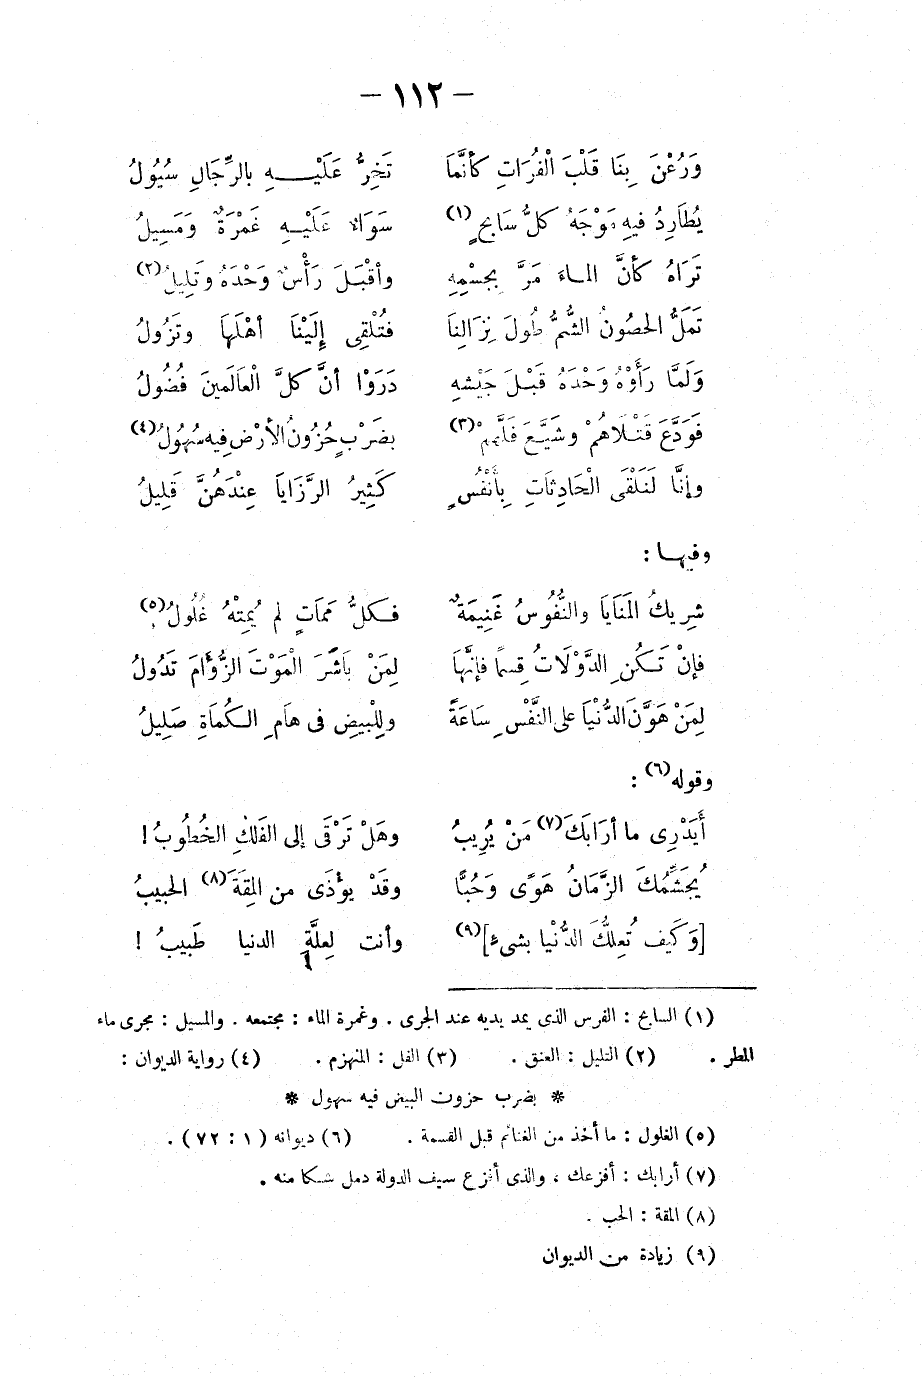 — ١١٢ —
وَرُعْنَ بِنَا قَلْبَ الْفُرَاتِ كأنَّمَا تَخِرُّ عَلَيْـهِ بالرِّجَالِ سُيُولُ
يُطَارِدُ فيهِ مَوْجَهُ كلُّ سَابحٍ (١) سَوَاءٌ عَلَيْـهِ غَمْرَةٌ وَمَسِيلُ
تَرَاهُ كأنَّ المـاءَ مَرَّ بجسْمِهِ وأقْبَـلَ رَأْسٌ وَحْدَهُ وَتَلِيلُ (٢)
تَمَلُّ الحصُونُ الشُّمُّ طُولَ نِزَالِنَا فتُلْقِى إِلَيْنَا أهْلَهَا وتَزُولُ
وَلَمَّا رَأَوْهُ وَحْدَهُ قَبْـلَ جَيْشهِ دَرَوْا أنَّ كلَّ الْعَالَمينَ فُضُولُ
فَوَدَّعَ قَتْـلَاهُمْ وشَيَّعَ فَلَّهمْ (٣) بضَرْبٍ حُزُونُ الأرْضِ فيه سُهُولُ (٤)
وإنَّا لَنَلْقَى الْحَادِثَاتِ بِأَنْفُسٍ كَثِيرُ الرَّزَايَا عِنْدَهُنَّ قَلِيلُ
وفيهـا :
شرِيكُ المَنَايَا والنُّفُوسُ غَنِيمَةٌ فـكلُّ مَمَاتٍ لم يُمِتْهُ غُلُولُ (٥)
فإنْ تَـكُنِ الدَّوْلَاتُ قِسمًا فإنَّهَا لِمَنْ بَاشَرَ الْمَوْتَ الزُّؤَامَ تَدُولُ
لِمَنْ هَوَّنَ الدُّنْيَا على النَّفْسِ سَاعَةً وللْبيضِ فى هَامِ الـكُمَاةِ صَلِيلُ
وقوله (٦) :
أَيَدْرِى ما أرَابَكَ (٧) مَنْ يُرِيبُ وهَلْ تَرْقَى إلى الفَلَكِ الخُطُوبُ !
يُجَشِّمُكَ الزَّمَانُ هَوًى وَحُبًّا وقَدْ يؤْذَى من المِقَةَ (٨) الحبيبُ
[وَكَيف تُعِلكَّ الدُّنْيا بشىءٍ] (٩) وأنت لِعلَّةِ الدنيا طَبيبُ !
(١) السابح : الفرس الذى يمد يديه عند الجرى . وغمرة الماء : مجتمعه . والمسيل : مجرى ماء
المطر . (٢) التليل : العنق . (٣) الفل : المنهزم . (٤) رواية الديوان :
* بضرب حزون البيض فيه سهول *
(٥) الغلول : ما أخذ من الغنائم قبل القسمة . (٦) ديوانه ( ١ : ٧٢ ) .
(٧) أرابك : أفزعك ، والذى أفزع سيف الدولة دمل شكا منه .
(٨) المقة : الحب .
(٩) زيادة من الديوان